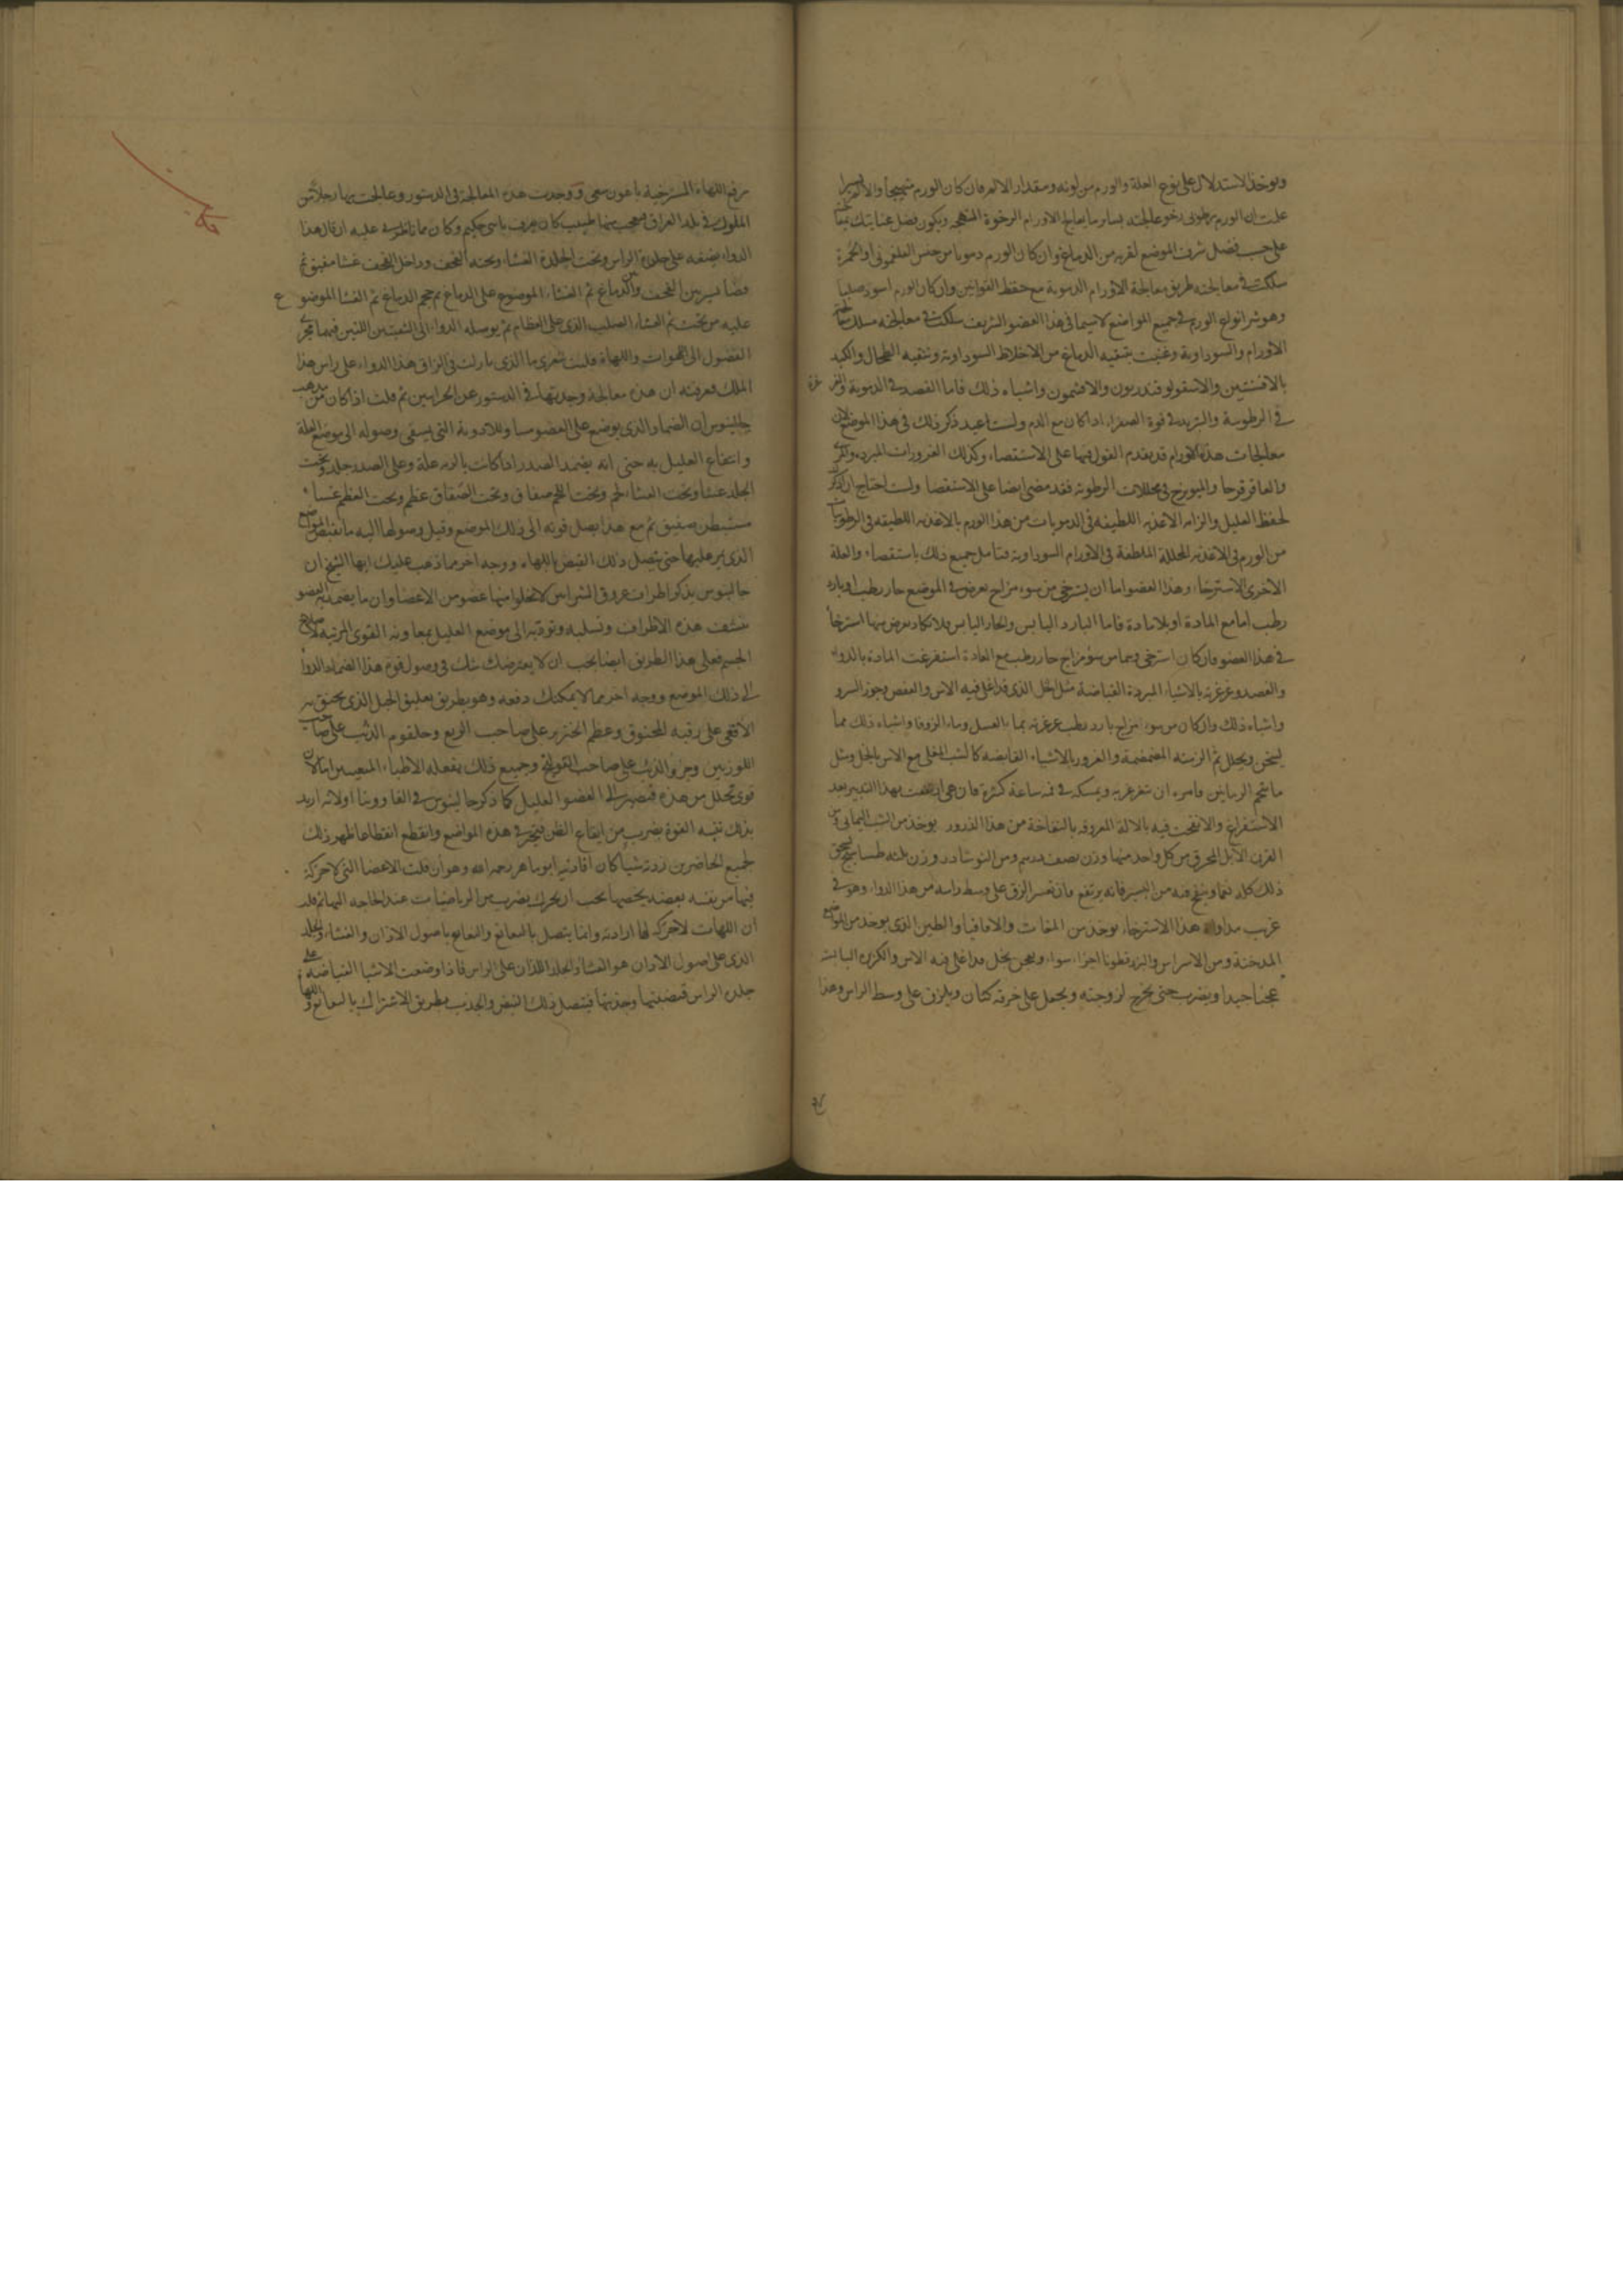 ويوخذ الاستدلال على نوع العلة والورم من لونه ومقدار الالم فان كان الورم متهيجا والالم يسيرا
علمت ان الورم رطوبى رخو عالجته بساير ما يعالج الاورام الرخوة المتهيجه ويكون فضل عنايتك
على حسب فضل شرف الموضع لقربه من الدماغ وان كان الورم دمويا من جنس الفلغمونى او الحمرة
سلكت فى معالجته طريق معالجة الاورام الدموية مع حفظ القوانين وان كان الورم اسود صلبا
وهو شر انواع الورم فى جميع المواضع لاسيما فى هذا العضو الشريف سلكت فى معالجته مسلك معالجة
الاورام السوداوية وعنيت بتنقيه الدماغ من الاخلاط السوداوية وتنقيه الطحال والكبد
بالافسنتين والاسقولوقندريون والافتيمون واشباه ذلك فاما الفصد فى الدموية والغرغرة
فى الرطوبية والتبريد فى قوة الصفراء اذا كان مع الدم ولست اعيد ذكر ذلك فى هذا الموضع لان
معالجات هذه الاورام قد يقدم القول فيها على الاستقصاء وكذلك الغرورات المبرده
والعاقرقرحا والميويزج فى محللات الرطوبه فقد مضى ايضا على الاستقصا ولست احتاج ان اذكر
لحفظ العليل والزامه الاغذيه اللطيفه فى الدمويات من هذا الورم بالاغذيه اللطيفه فى الرطوبيات
من الورم فى الاغذيه المحللة الملطفة فى الاورام السوداويه فتامل جميع ذلك باستقصاء والعلة
الاخرى الاسترخاء وهذا العضو اما ان يسترخى من سوء مزاج يعرض فى الموضع حار رطب او بارد
رطب اما مع المادة او بلا مادة فاما البارد اليابس والحار اليابس فلا تكاد يعرض منها استرخا
فى هذا العضو فان كان استرخى وبما من سوء مزاج حار رطب مع المادة استفرغت المادة بالدواء
والفصد وغرغرته بالاشياء المبردة القباضة مثل الخل الذى قد اغلى فيه الاس والعفص وجوز السرو
واشباه ذلك وان كان من سوء مزاج بارد رطب غرغرته بماء العسل وماء الزوفا واشباه ذلك مما
يسخن ويحلل ثم الزمته المضمضة والغرور بالاشياء القابضه كالشب المغلى مع الاس بالخل ومثل
ماتحم الرياض وامره ان يتغرغر به ويمسكه فى فمه ساعة كثيرة فان هى ارتفعت بهذا التدبير بعد
الاستفراغ والا نفخت فيه بالالة المعروفه بالنفاخة من هذا الذرور يوخذ من الشب اليمانى ومن
القرن الايل المحرق من كل واحد منهما وزن نصف درهم ومن النوشادر وزن ثلثه طساسيج يسحق
ذلك كله نعما وينفخ فيه من اليسير فانه يرتفع فان تعسر الزق على وسط راسه من هذا الدواء وهو فى
غريب مداواة هذا الاسترخاء يوخذ من المغاث والاقاقيا والطين الذى يوخذ من المواضع
المدخنة ومن الاسراس والبزرقطونا اجزاء سواء ويعجن بخل قد اغلى فيه الاس والكزبره اليابسه
عجنا جيدا ويضرب حتى تخرج لزوجته ويجعل على خرقه كتان ويلزق على وسط الراس وهذا
مرفع اللهاة المسترخية باهون سعى ووجدت هذه المعالجة فى الدستور وعالجت بها رجلا من
الملوك فى بلد العراق فعجب منها طبيب كان يعرف باسى حكيم وكان مما ناظرنى عليه ان قال هذا
الدواء يضعه على جلدة الراس وتحت الجلدة الغشاء وتحته القحف وداخل القحف غشا صفيق ثم
فضا يسير بين القحف والدماغ ثم الغشاء الموضوع على الدماغ ثم حجم الدماغ ثم الغشا الموضوع
عليه من تحت ثم الغشاء الصلب الذى على العظام ثم يوصله الدواء الى الثقبتين اللتين فيهما مجرى
الفضول الى اللهوات واللهاة فليت شعرى ما الذى ما رلت فى الزاق هذا الدواء على راس هذا
الملك فعرفته ان هذه معالجة وجدتها فى الدستور عن الحرانيين ثم قلت اذا كان من مذهب
جالينوس ان الضماد الذى يوضع على العضو مساو للادوية التى يسقى وصوله الى موضع العلة
وانتفاع العليل به حتى انه يضمد الصدر اذا كانت بالريه علة وعلى الصدر جلد وتحت
الجلد غشا وتحت الغشاء لحم وتحت اللحم صفاق وتحت الصفاق عظم وتحت العظم غشاء
مستبطن صفيق ثم مع هذا يصل قوته الى ذلك الموضع وقبل وصولها اليه ما تقبض المواضع
الذى يمر عليها حتى يتصل ذلك القبض باللهاه ووجه اخر مما ذهب عليك ايها الشيخ ان
جالينوس يذكر اطراف عروق الشرايين لا تخلوا منها عضو من الاعضا وان ما يضمد به العضو
تنشف هذه الاطراف وتسلبه وتوديه الى موضع العليل بمعاونه القوى المرتبه لاصلاح
الجسم فعلى هذا الطريق ايضا يجب ان لا يعترضك شك فى وصول قوة هذا الضماد الدوا
الى ذلك الموضع ووجه اخر مما لا يمكنك دفعه وهو بطريق تعليق الحبل الذى يخنق به
الافعى على رقبه المخنوق وعظم الخنزير على صاحب الربع وحلقوم الذئب على صاحب
اللوزتين وجزء الذئب على صاحب القولنج وجميع ذلك يفعله الاطباء المتعيسين اما لان
قوى تحلل من هذه فتصير الى العضو العليل كما ذكر جالينوس فى الفاوونيا او لانه اريد
بذلك تنبه القوة بضرب من ايقاع الظن فتحرك فى هذه المواضع وانقطع انقطاعا ظهر ذلك
لجميع الحاضرين زدته شيا كان افادنيه ابو ماهر رحمه الله وهو ان قلت الاعضا التى لا حركة
فيها من نفسه بعضه يخصها يجب ان يحرك بضرب من الرياضيات عند الحاجه اليها ثم قد
ان اللهات لا حركه لها ارادته وانما يتصل بالنغانغ والنغانغ باصول الاذان والغشاء والجلد
الذى على اصول الاذان هو الغشا والجلد اللذان على الراس فاذا وضعت الاشيا القباضه على
جلده الراس قبضتهما وجذبتهما فيتصل ذلك القبض والجذب بطريق الاشتراك بالنغانغ واللهاة